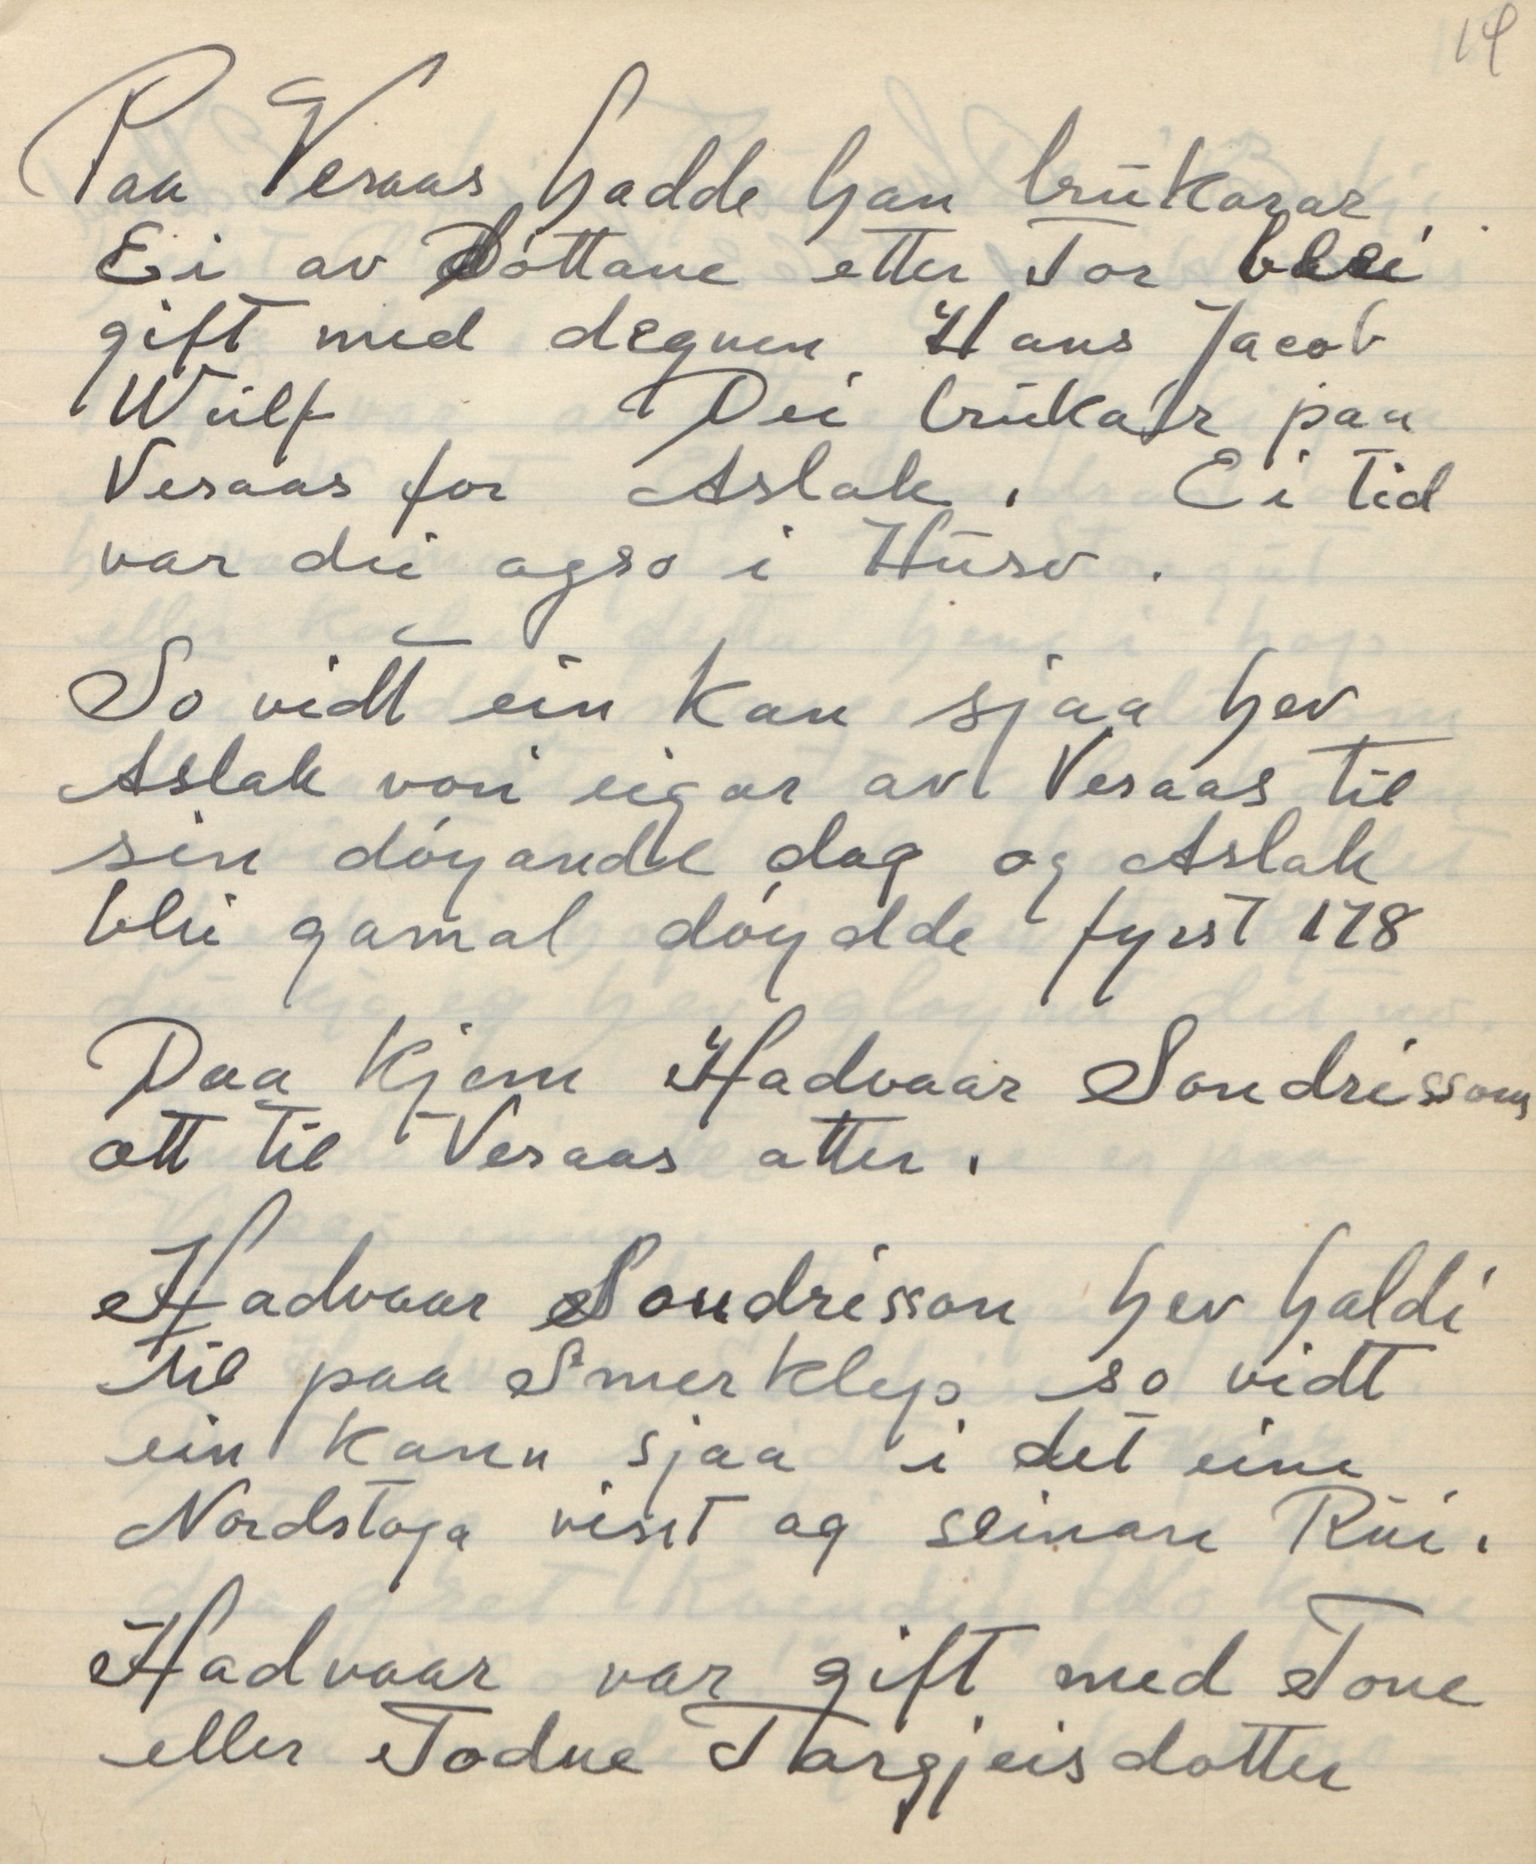 14
Paa Vesaas hadde han brukarar.
Ei av Dóttane etter Tor blei
gift med degnen Hans Jacob
Wulf Dei bruka paa
Vesaas for Aslak. Ei tid
var dei ogso i Huso.
So vidt ein kan sjaa hev
Aslak vori eigar av Vesaas til
sin dóyande dag og Aslak
blei gamal dóydde fyrst 178
Daa kjem Hadvaar Sondrissons
ætt til Vesaas atter.
Hadvaar Sondrisson hev haldi
til paa Smerklep so vidt
ein kann sjaa i det eine
Nordstoga visst og seinare Rui.
Hadvaar var gift med Tone
eller Todne Targjeisdotter